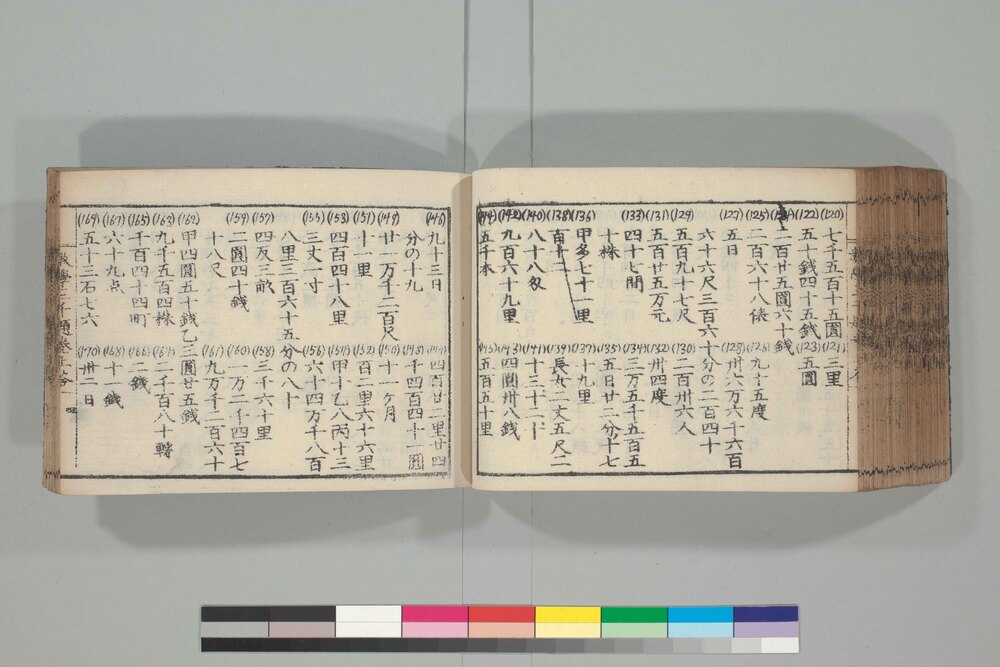 (120) 七千五百十五圓 (121) 三里
(122) 五十錢四十五錢 (123) 五圓
二百廿五圓六十錢
(125) 二百六十八俵 (126) 九十五度
(127) 五日 (128) 卅六万六千六百
六十六尺三百六十分の二百四十
(129) 五百九十七尺 (130) 二百卅六人
(131) 五百廿五万元 (132) 卅四度
(133) 四十七間 (134) 三万五千五百五
十株 (135) 五日廿二分十七
(136) 甲多七十一里 (137) 十九里
(138) 百十 (139) 長女二丈五尺二
(140) 八十八匁 (141) 十三十二
(142) 九百六十九里 (143) 四圓卅八錢
(144) 五千本 (145) 五百五十里
(146) 九十三日 (147) 四百廿二里廿四
分の十九 (148) 千四百四十一圓
(149) 廿一万千二百尺 (150) 十一ヶ月
(151) 十一里 (152) 百二里六十六里
(153) 四百四十八里 (154) 甲十乙八丙十三
(155) 三丈一寸 (156) 六十四万千八百
八里三百六十五分の八十
(157) 四反三畝 (158) 三千六十里
(159) 二圓四十錢 (160) 一万二千四百七
十八尺 (161) 九万千二百六十
(162) 甲四圓五十錢乙三圓廿五錢
(163) 九千五百四株 (164) 二千百八十轉
(165) 千百四十四町 (166) 二錢
(167) 六十九点 (168) 十一錢
(169) 五十三石七六 (170) 卅二日